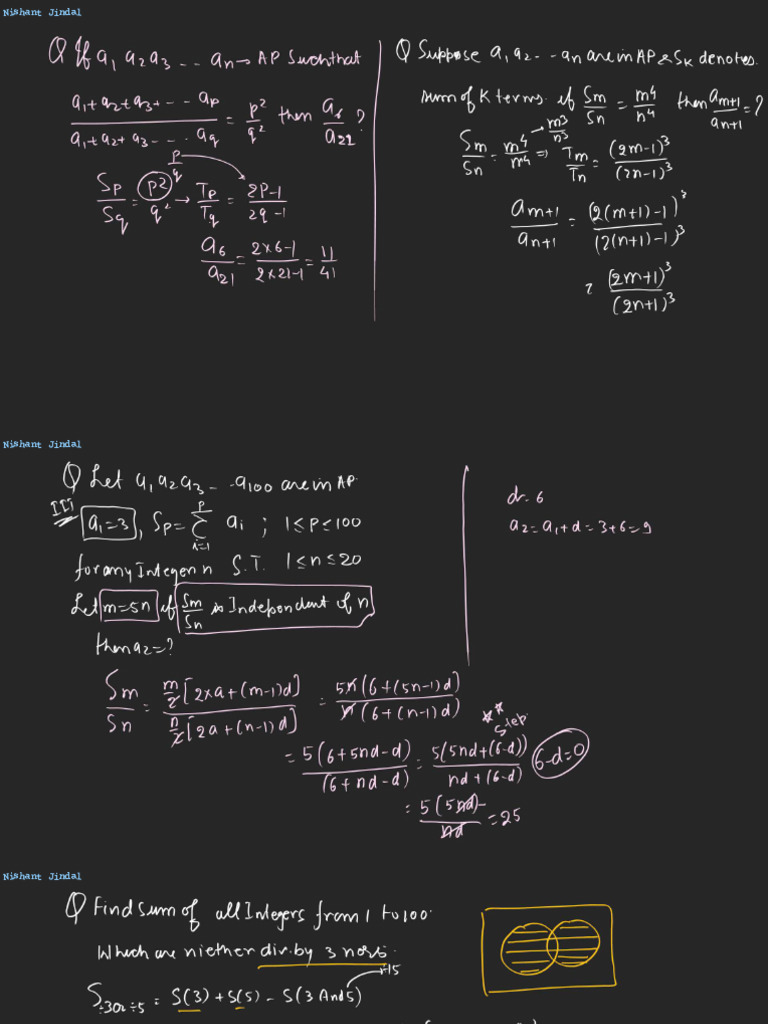 Nishant Jindal
Q If a1 a2 a3 --- an → AP Such that
a1+a2+a3+--- ap / a1+a2+a3----- aq = p²/q² then a6/a22 ?
Sp/Sq = p²/q² → Tp/Tq = 2p-1/2q-1
p/q
a6/a21 = 2×6-1/2×21-1 = 11/41
Q Suppose a1 a2 -- an are in AP & Sk denotes
sum of K terms if Sm/Sn = m⁴/n⁴ then am+1/an+1 = ?
→ m³/n³
Sm/Sn = m⁴/m⁴ ⇒ Tm/Tn = (2m-1)³/(2n-1)³
am+1/an+1 = (2(m+1)-1)³/(2(n+1)-1)³
= (2m+1)³/(2n+1)³
Nishant Jindal
Q Let a1 a2 a3 -- a100 are in AP
IIT
a1=3, Sp = Σ i=1 p ai ; 1≤p≤100
for any Integer n S.T. 1≤n≤20
Let m=5n if Sm/Sn is Independent of n
then a2=?
Sm/Sn = m/2[2×a+(m-1)d] / n/2[2a+(n-1)d] = 5n(6+(5n-1)d) / n(6+(n-1)d)
** Step
= 5(6+5nd-d)/(6+nd-d) = 5(5nd+(6-d))/nd+(6-d) 6-d=0
= 5(5nd)/nd = 25
d=6
a2=a1+d=3+6=9
Nishant Jindal
Q Find sum of all Integers from 1 to 100
Which are niether div. by 3 nor 5.
÷15
S÷3or÷5 = S(3)+S(5)-S(3 And 5)